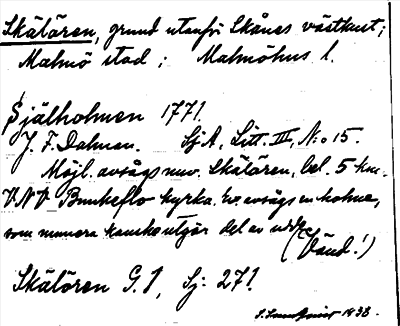 Skälören, grund utanför Skånes västkust;
Malmö stad; Malmöhus l.
Själholmen 1771.
J. F. Dalman. Sj. A, Litt. III, N:o 15.
Möjl. avsågs nuv. Skälören, bel. 5 km.
V.N.V. Bunkeflo kyrka. el. avsågs en holme,
som numera kanske utgör del av udde
(Vänd!)
Skälören G. S, Sj: 271.
1938.